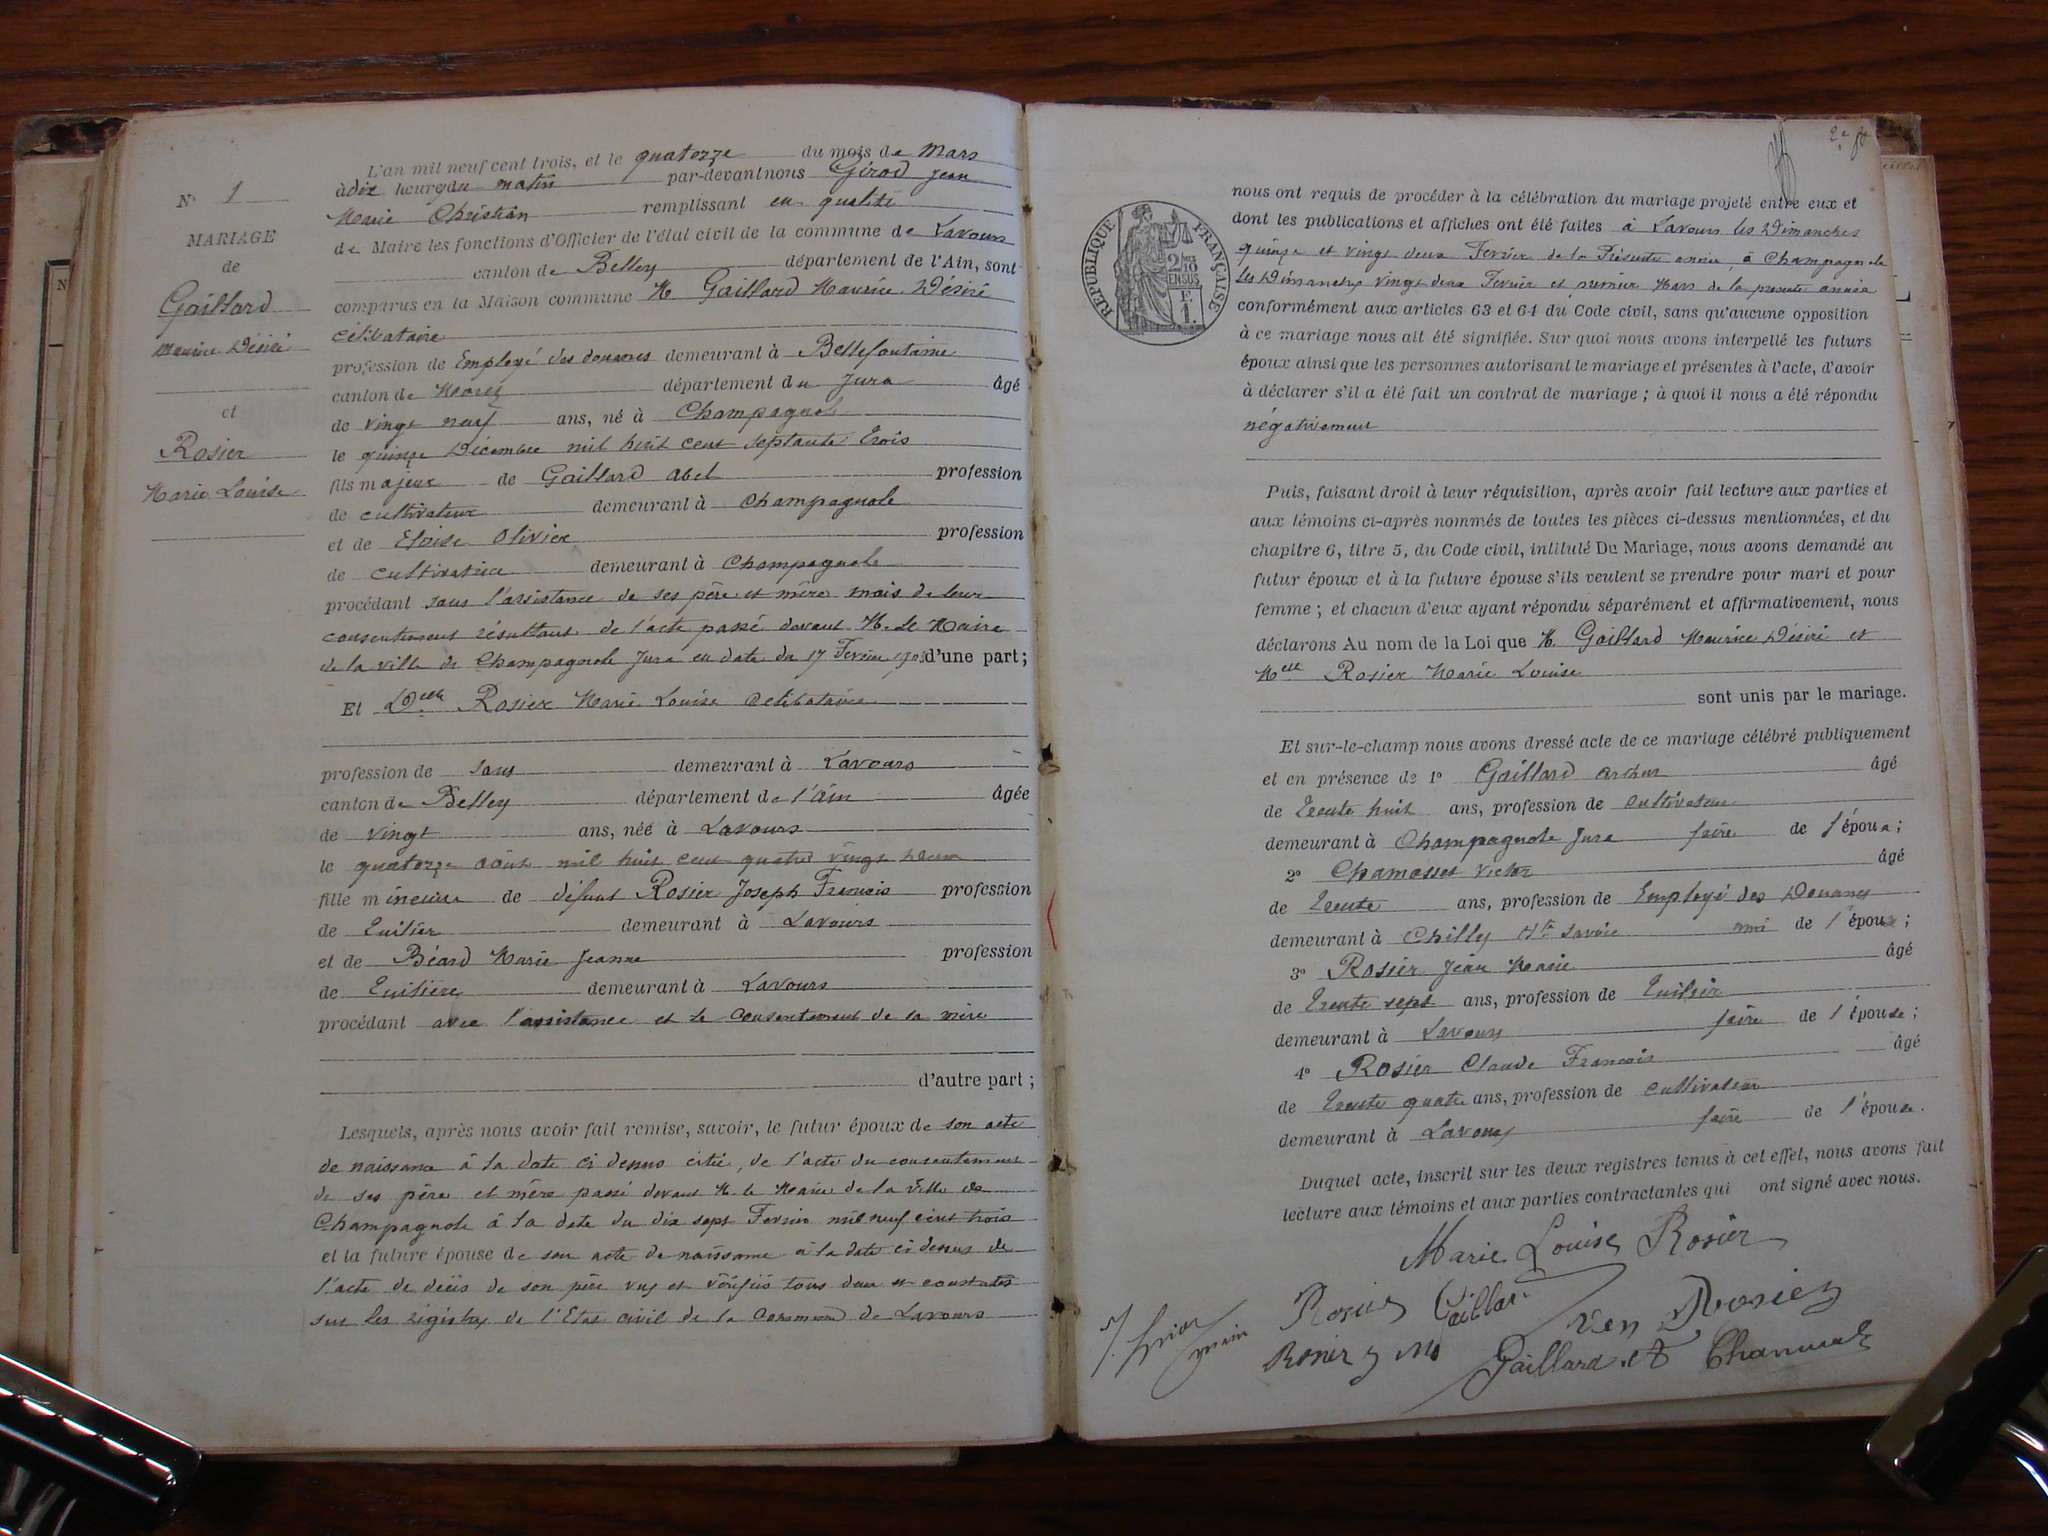 N° 1
MARIAGE
de
Gaillard
Maurice Désiré
et
Rosier
Marie Louise
L'an mil neuf cent trois, et le quatorze du mois de Mars
à dix heures du matin par-devant nous Girod Jean
Marie Christian remplissant en qualité
de Maire les fonctions d'Officier de l'état civil de la commune de Lavours
canton de Belley département de l'Ain, sont
comparus en la Maison commune M. Gaillard Maurice Désiré
célibataire
profession de Employé des douanes demeurant à Bellefontaine
canton de Morez département du Jura âgé
de vingt neuf ans, né à Champagnole
le quinze Décembre mil huit cent septante trois
fils majeur de Gaillard Abel profession
de cultivateur demeurant à Champagnole
et de Eloise Olivier profession
de cultivatrice demeurant à Champagnole
procédant sans l'assistance de ses père et mère mais de leur
consentement résultant de l'acte passé devant M. le Maire
de la ville de Champagnole Jura en date du 17 Fevrier 1903 d'une part;
Et Delle Rosier Marie Louise Celibataire
profession de sans demeurant à Lavours
canton de Belley département de l'Ain âgée
de vingt ans, née à Lavours
le quatorze août mil huit cent quatre vingt deux
fille mineure de défunt Rosier Joseph Francois profession
de Tuilier demeurant à Lavours
et de Béard Marie Jeanne profession
de Tuiliere demeurant à Lavours
procédant avec l'assistance et le consentement de sa mère
d'autre part;
Lesquels, après nous avoir fait remise, savoir, le futur époux de son acte
de naissance à la date ci dessus citée, de l'acte du consentement
de ses père et mère passé devant M. le Maire de la ville de
Champagnole à la date du dix sept Fevrier mil neuf cent trois
et la future épouse de son acte de naissance à la date ci dessus de
l'acte de décès de son père vus et vérifiés tous deux et constatés
sur les régistres de l'Etat civil de la Commune de Lavours
2e f
RÉPUBLIQUE FRANÇAISE
2/10 EN SUS
F
1.
nous ont requis de procéder à la célébration du mariage projeté entre eux et
dont les publications et affiches ont été faites à Lavours les Dimanches
quinze et vingt deux Fevrier de la Présente année, à Champagnole
les Dimanches vingt deux Fevrier et premier Mars de la presente année
conformément aux articles 63 et 64 du Code civil, sans qu'aucune opposition
à ce mariage nous ait été signifiée. Sur quoi nous avons interpellé les futurs
époux ainsi que les personnes autorisant le mariage et présentes à l'acte, d'avoir
à déclarer s'il a été fait un contrat de mariage; à quoi il nous a été répondu
négativement
Puis, faisant droit à leur réquisition, après avoir fait lecture aux parties et
aux témoins ci-après nommés de toutes les pièces ci-dessus mentionnées, et du
chapitre 6, titre 5, du Code civil, intitulé Du Mariage, nous avons demandé au
futur époux et à la future épouse s'ils veulent se prendre pour mari et pour
femme; et chacun d'eux ayant répondu séparément et affirmativement, nous
déclarons Au nom de la Loi que M. Gaillard Maurice Désiré et
Melle Rosier Marie Louise
sont unis par le mariage.
Et sur-le-champ nous avons dressé acte de ce mariage célébré publiquement
et en présence de 1° Gaillard Arthur âgé
de trente huit ans, profession de cultivateur
demeurant à Champagnole Jura frère de l'époux;
2° Chamosset Victor âgé
de trente ans, profession de Employé des Douanes
demeurant à Chilly Hte Savoie ami de l'époux;
3° Rosier Jean Marie âgé
de trente sept ans, profession de Tuilier
demeurant à Lavours frère de l'épouse;
4° Rosier Claude Francois âgé
de trente quatre ans, profession de cultivateur
demeurant à Lavours frère de l'épouse.
Duquel acte, inscrit sur les deux registres tenus à cet effet, nous avons fait
lecture aux témoins et aux parties contractantes qui ont signé avec nous.
Marie Louise Rosier
Rosier Gaillard Rosier
Rosier Gaillard